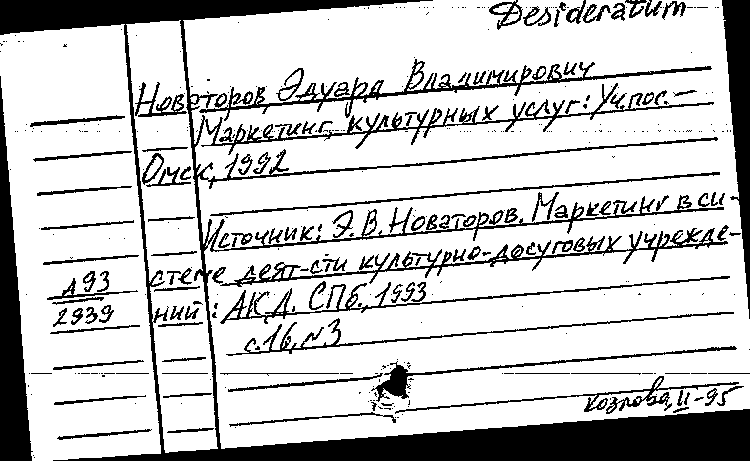 Desideratum
Новаторов, Эдуард Владимирович
Маркетинг культурных услуг: Уч.пос.—
Омск, 1992
Источник: Э.В. Новаторов. Маркетинг в си-
стеме деят-сти культурно-досуговых учрежде-
А93
2939
ний: АКД. СПб., 1993
с.16, №3
Козлова, II-95